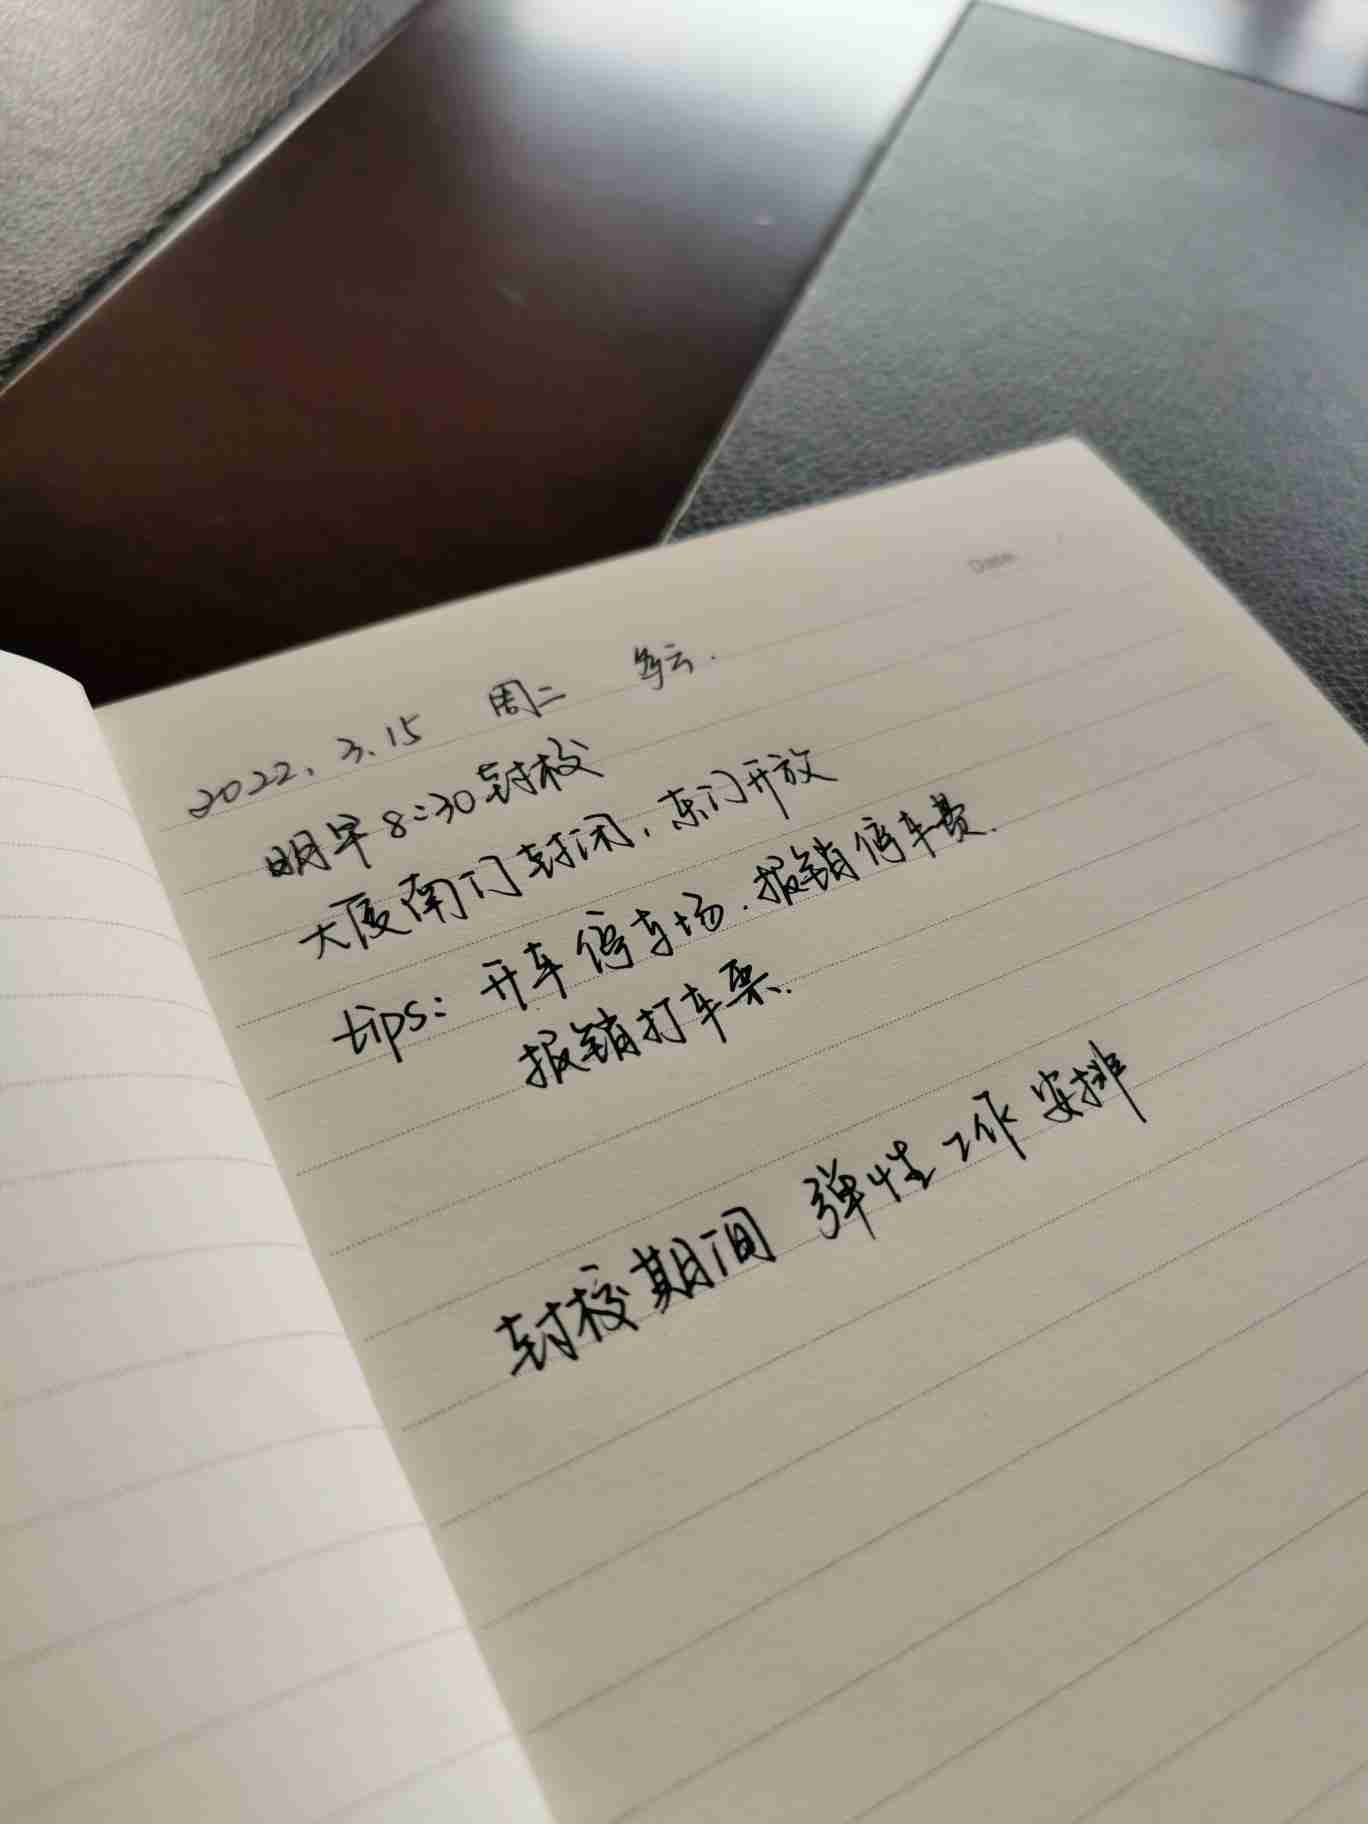 Date
2022.3.15 周二 多云.
明早8:30封校
大厦南门封闭，东门开放
tips: 开车停车场.报销停车费.
报销打车票.
封校期间 弹性工作安排